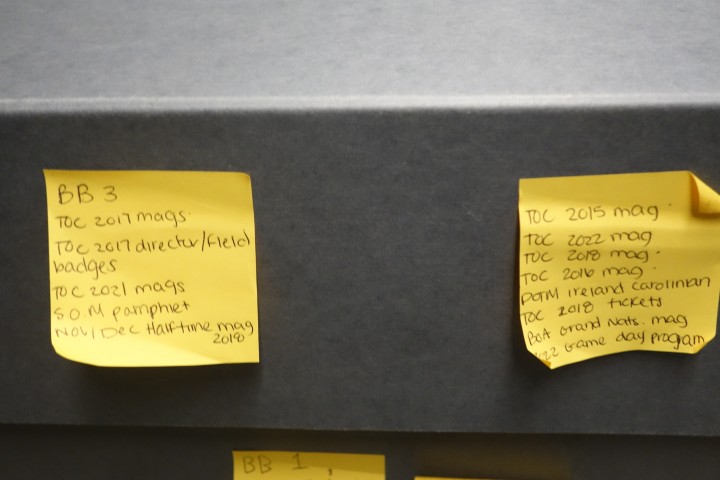 BB 3
TOC 2017 mags
TOC 2017 director/field
badges
TOC 2021 mags
S.O.M pamphlet
NOV/Dec Halftime mag
2018
TOC 2015 mag
TOC 2022 mag
TOC 2018 mag
TOC 2016 mag
POTM Ireland Carolinian
TOC 2018 tickets
BOA Grand Nats. mag
2022 Game day program
BB 1